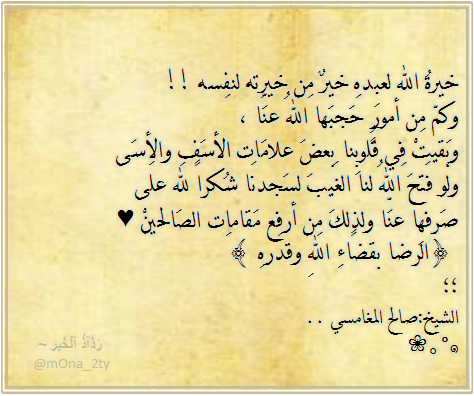 خيرةُ الله لعبدهِ خيرٌ مِن خِيرِته لنفِسه !!
وكمّ مِن أمورٍ حَجبَها اللهُ عنَا ،
وبَقيتْ فِي قُلوبِنا بِعضَ علامَات الأسَفِ والأِسَى
ولو فتَحَ اللّه لنا الغيبَ لسَجدنا شُكرا لله على
صَرفِها عنَا ولذلكَ مِن أرفِع مَقامِات الصَالحينْ ♥
﴿ الرِضا بقضاءِ اللهِ وقدَرهِ ﴾
؛؛
الشيخ:صالح المغامسي . .
๑°｡❀
رَذُاذُ الَخَير ~
@mOna_2ty